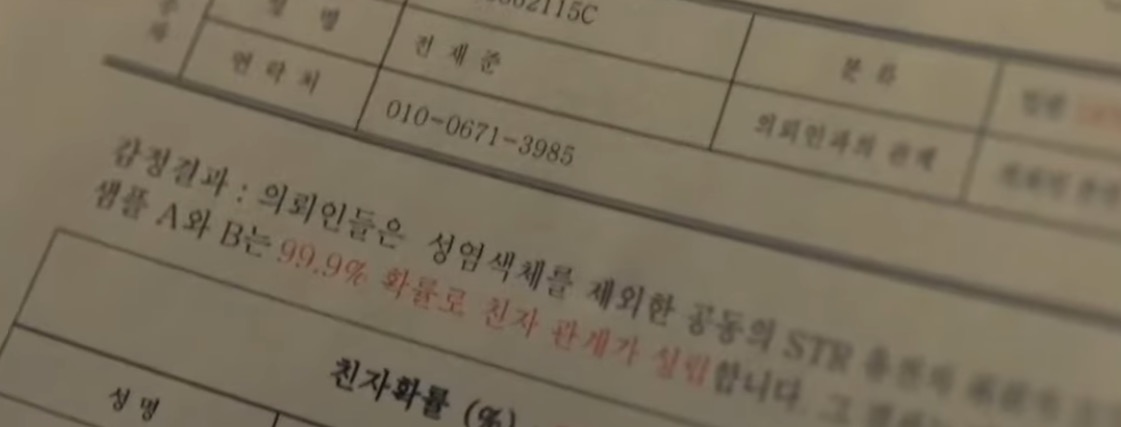 02115C
성 명
전 재 준
분 류
연 락 처
010-0671-3985
의뢰인과의 관계
감정결과 : 의뢰인들은 성염색체를 제외한 공동의 STR 유전자
샘플 A와 B는 99.9% 확률로 친자 관계가 성립합니다. 그
친자확률 (%)
성 명